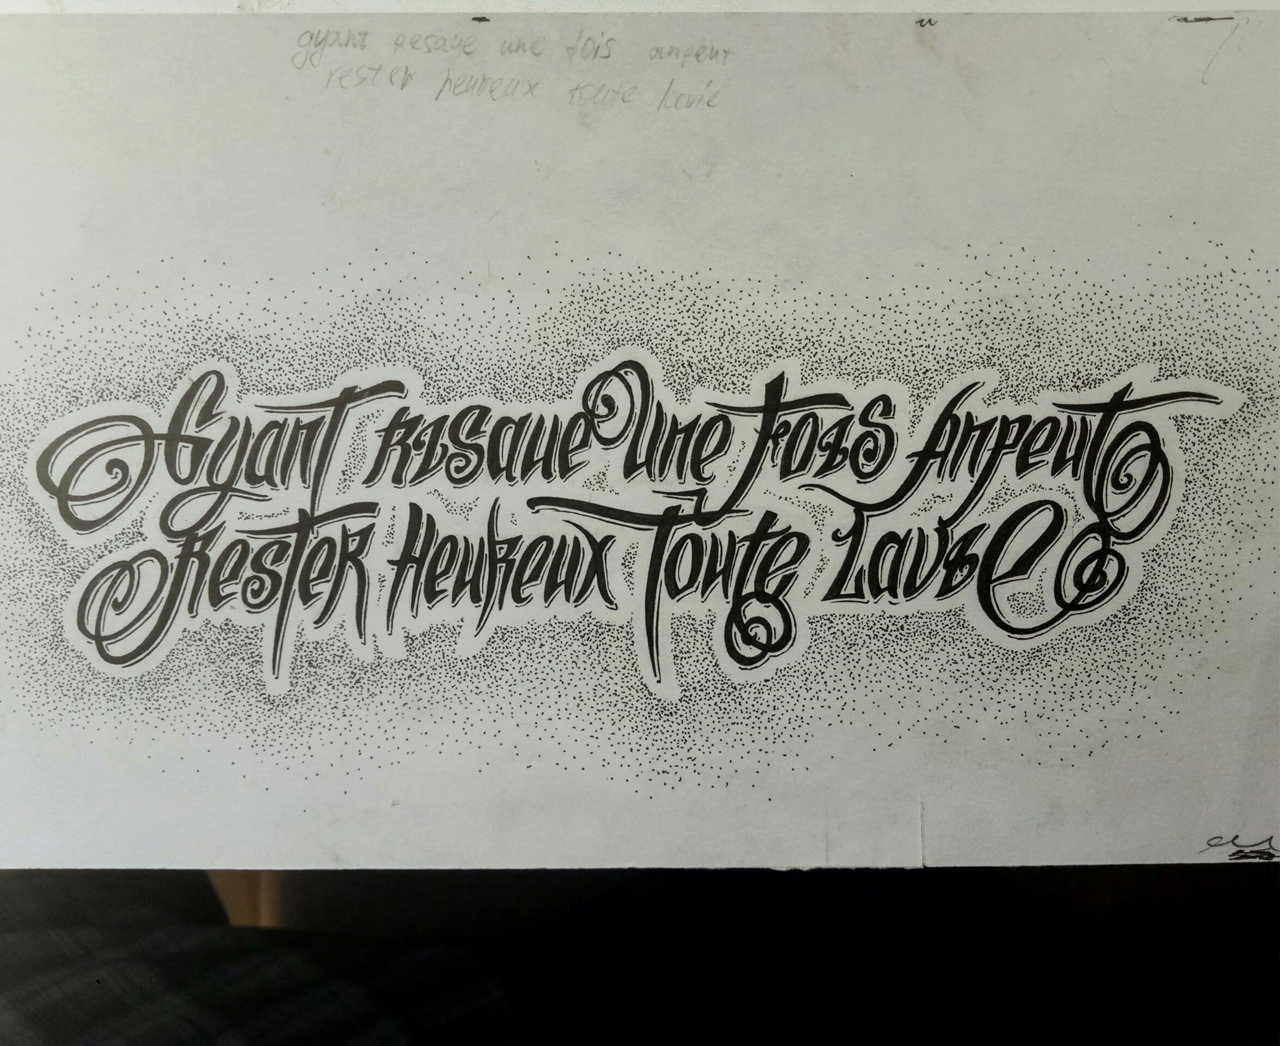 gyant resaue une fois anpeut
rester heureux toute lavie
Gyant Risaue Une Fois Anpeut
Rester Heureux Toute Lavie